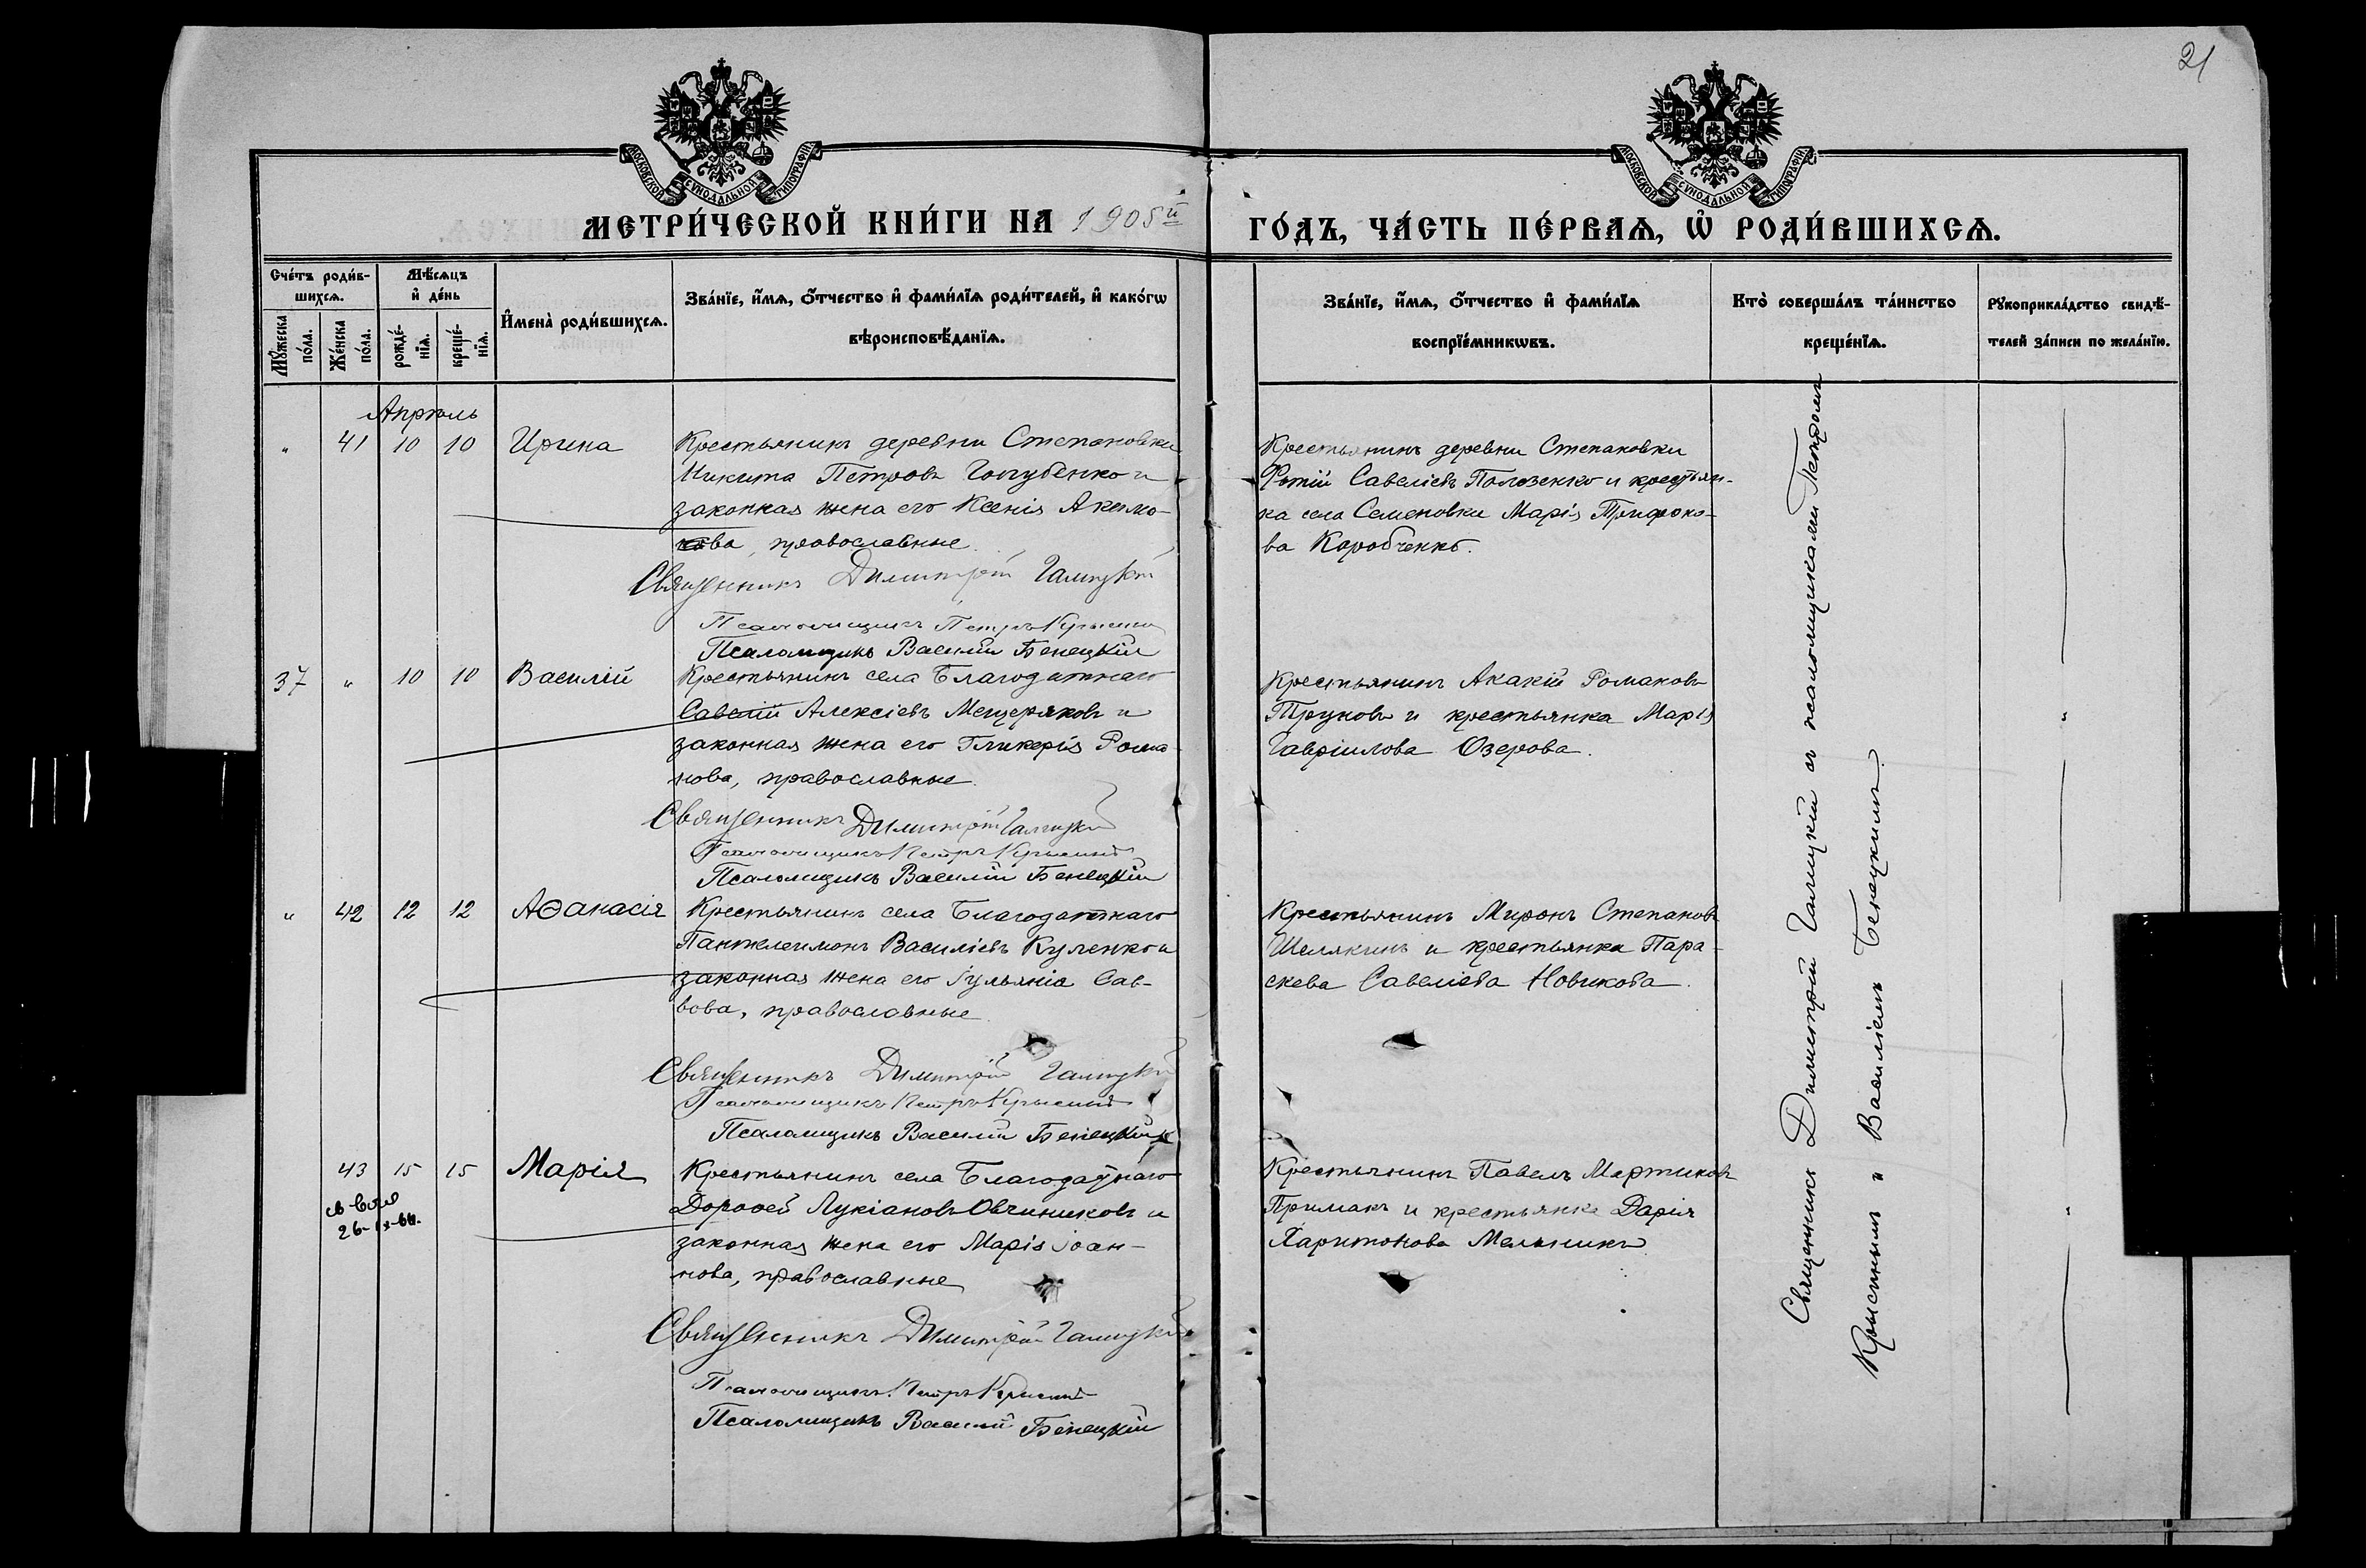 21
МОСКОВСКОЙ СѴНОДАЛЬНОЙ ТИПОГРАФІИ
МОСКОВСКОЙ СѴНОДАЛЬНОЙ ТИПОГРАФІИ
МЕТРИ́ЧЕСКОЙ КНИ́ГИ НА 1905й ГО́ДЪ, ЧА́СТЬ ПЕ́РВАѦ, Ѽ РОДИ́ВШИХСѦ.
Сче́тъ роди́в-
шихсѧ.
Мꙋ́жеска по́ла.
Же́нска по́ла.
Мѣ́сѧцъ
и҆ де́нь
рожде́-
нїѧ.
креще́-
нїѧ.
И҆мена̀ роди́вшихсѧ.
Зва́нїе, и҆́мѧ, ѻ҆́тчество и҆ фами́лїѧ роди́телей, и҆ како́гѡ
вѣроисповѣ́данїѧ.
Зва́нїе, и҆́мѧ, ѻ҆́тчество и҆ фами́лїѧ
воспрїе́мникѡвъ.
Кто̀ соверша́лъ та́инство
креще́нїѧ.
Рꙋкоприкла́дство свидѣ́-
телей за́писи по жела́нїю.
Апрѣль
" 41 10 10 Ирина
Крестьянинъ деревни Степановки
Никита Петровъ Голубенко и
законная жена его Ксенія Акимо-
ва, православные.
Священникъ Димитрій Галицкій
Псаломщикъ Петръ Крысинъ
Псаломщикъ Василій Бенецкій
Крестьянинъ деревни Степановки
Фотій Савеліевъ Полозенко и крестьян-
ка села Семеновки Марія Трифоно-
ва Коробченко.
37 " 10 10 Василій
Крестьянинъ села Благодатнаго
Савелій Алексіевъ Мещеряковъ и
законная жена его Гликерія Рома-
нова, православные.
Священникъ Димитрій Галицкій
Псаломщикъ Петръ Крысинъ
Псаломщикъ Василій Бенецкій
Крестьянинъ Акакій Романовъ
Труновъ и крестьянка Марія
Гавріилова Озерова.
" 42 12 12 Аѳанасія
Крестьянинъ села Благодатнаго
Пантелеимонъ Василіевъ Куленко и
законная жена его Іульянія Сав-
вова, православные
Священникъ Димитрій Галицкій
Псаломщикъ Петръ Крысинъ
Псаломщикъ Василій Бенецкій
Крестьянинъ Миронъ Степановъ
Шелякинъ и крестьянка Пара-
скева Савеліева Новикова.
43 15 15 Марія
26-IX-64.
Крестьянинъ села Благодатнаго
Дороѳей Лукіановъ Овчиниковъ и
законная жена его Марія Іоан-
нова, православные
Священникъ Димитрій Галицкій
Псаломщикъ Петръ Крысинъ
Псаломщикъ Василій Бенецкій
Крестьянинъ Павелъ Мартиновъ
Примакъ и крестьянка Дарія
Харитонова Мельникъ
Священникъ Димитрій Галицкій съ псаломщиками Петромъ
Крысинымъ и Василіемъ Бенецкимъ.